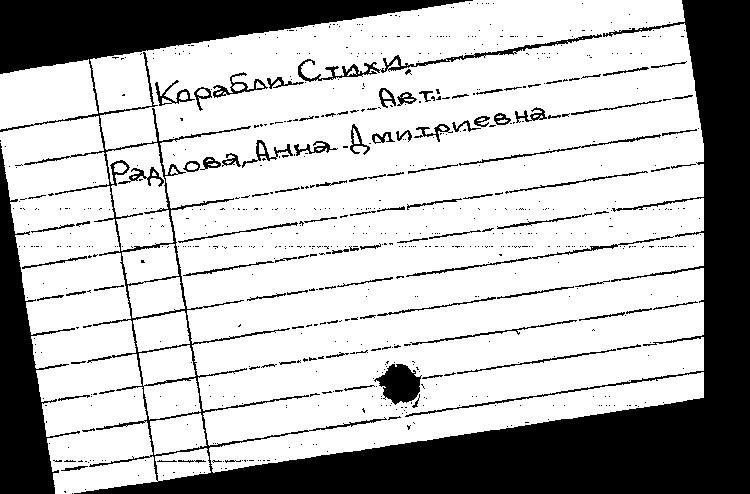 Корабли. Стихи.
Авт.:
Радлова, Анна Дмитриевна